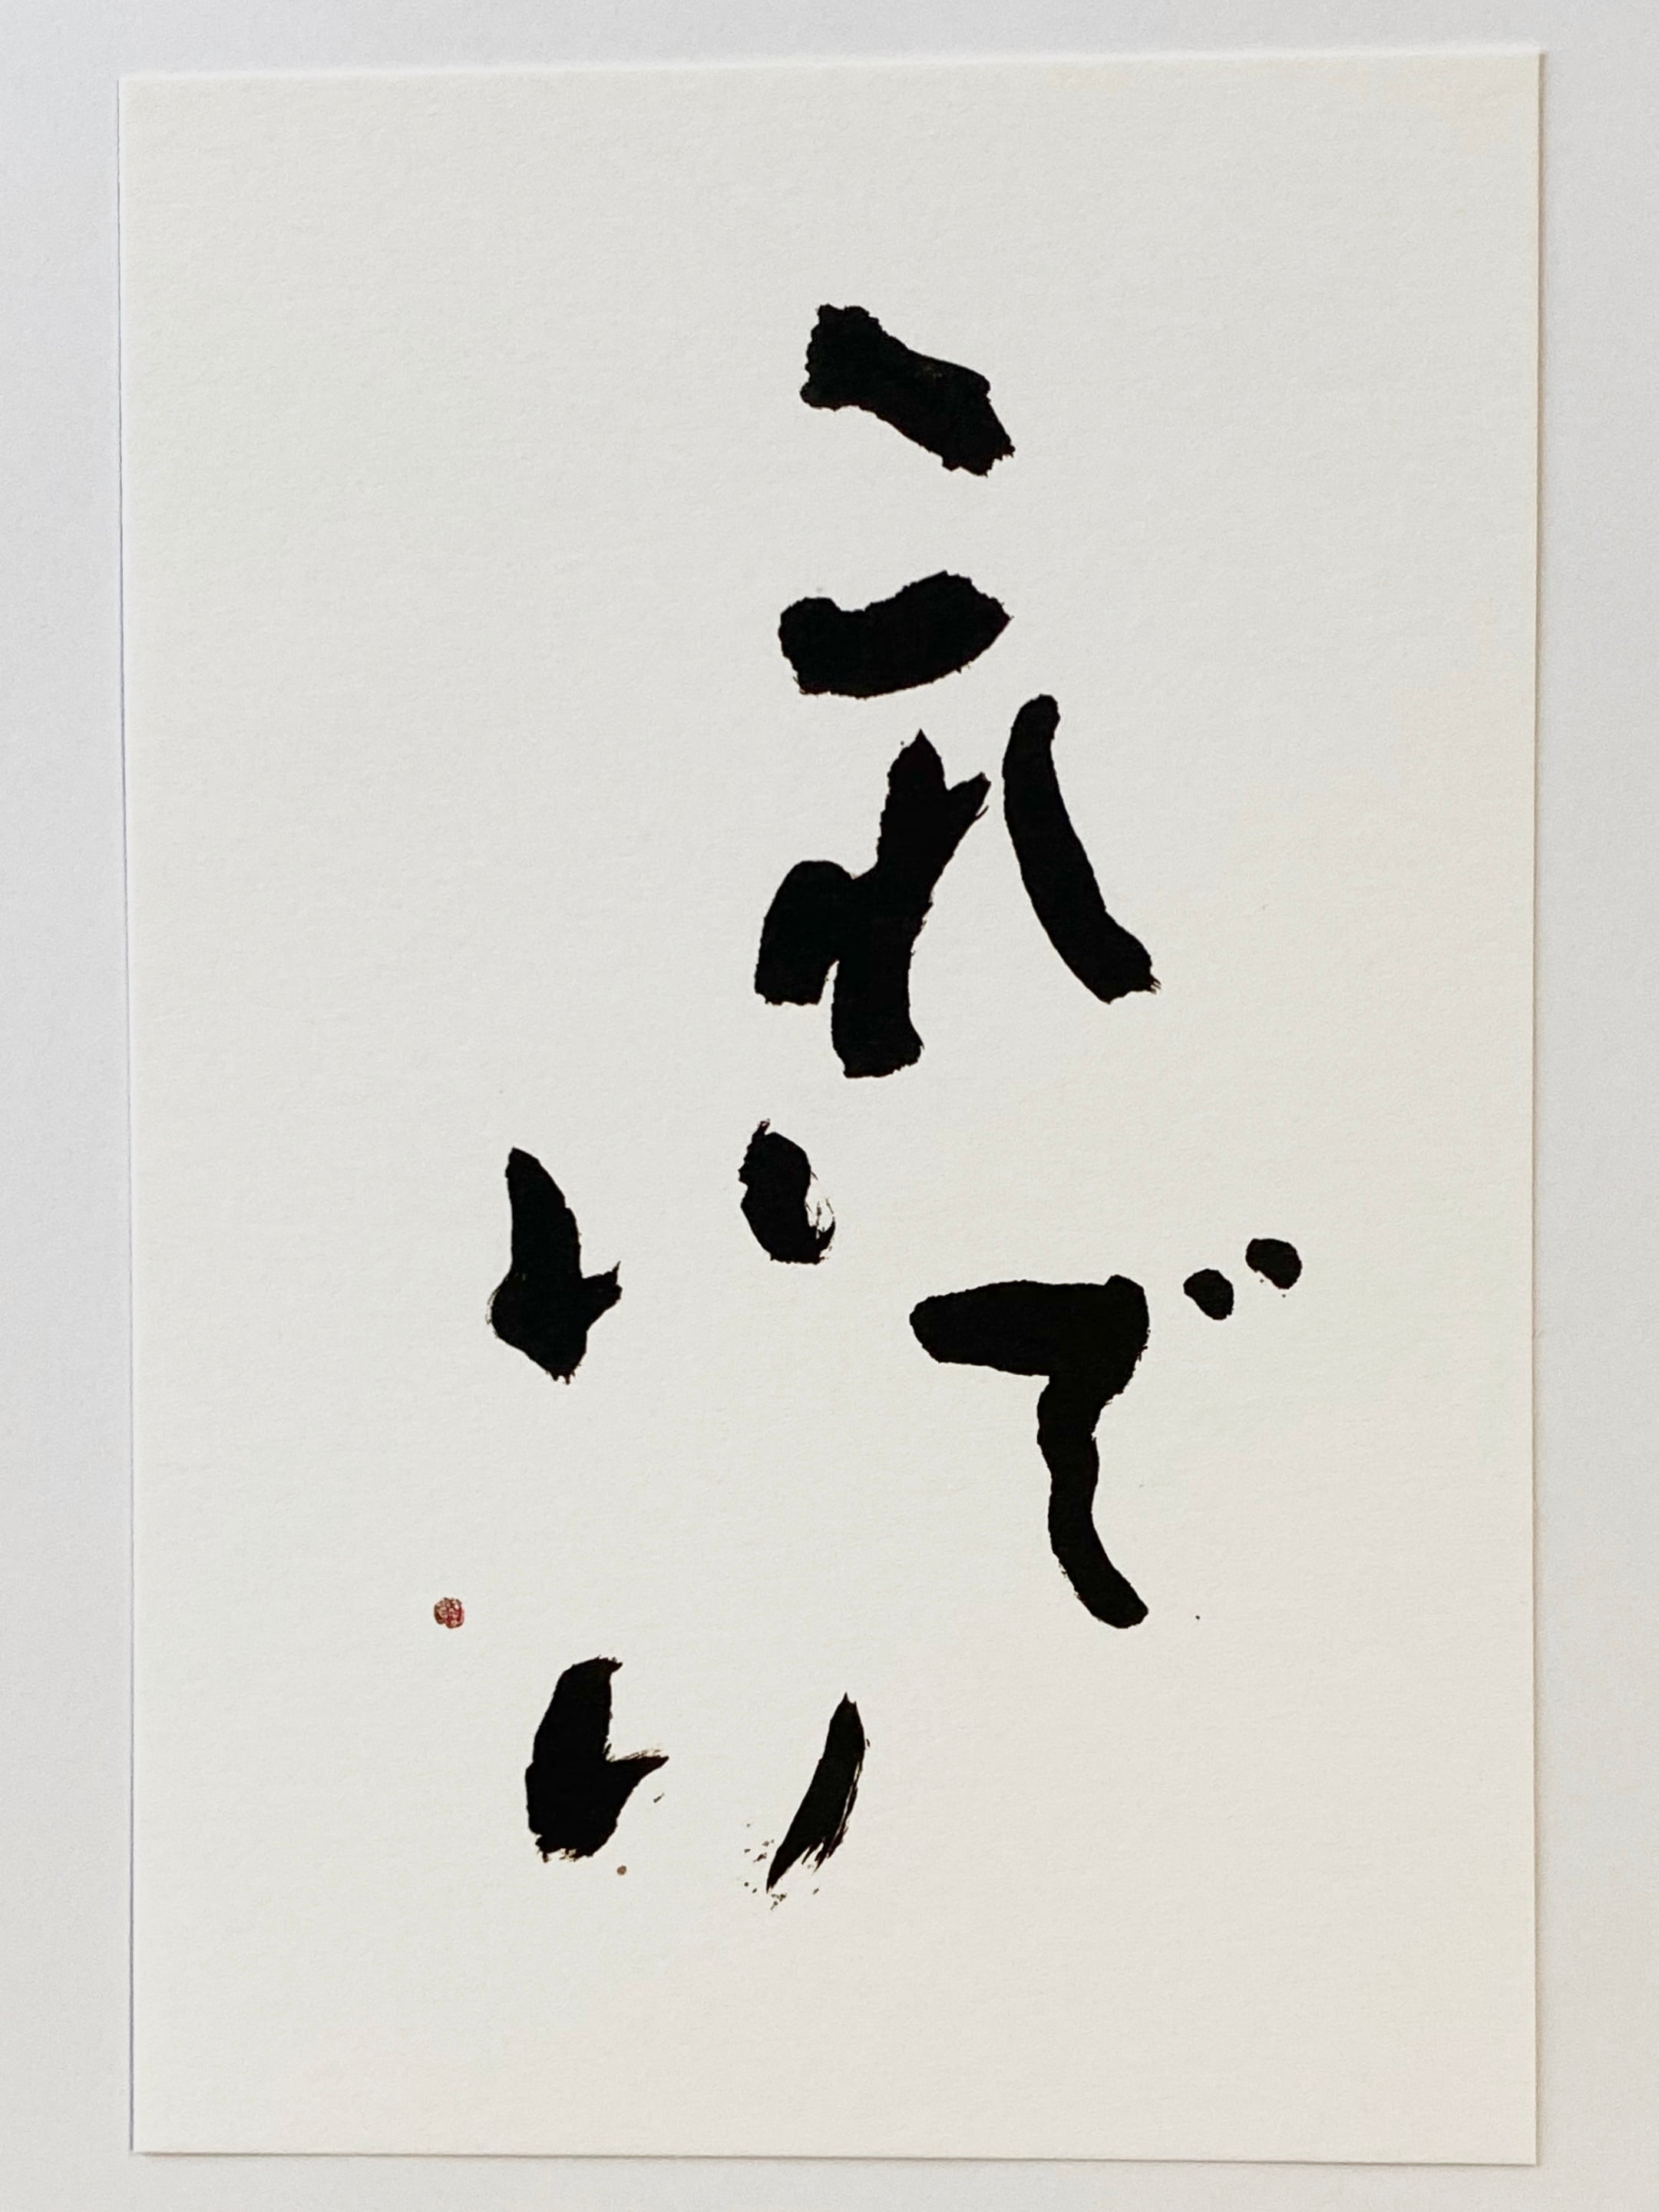 これで
いい